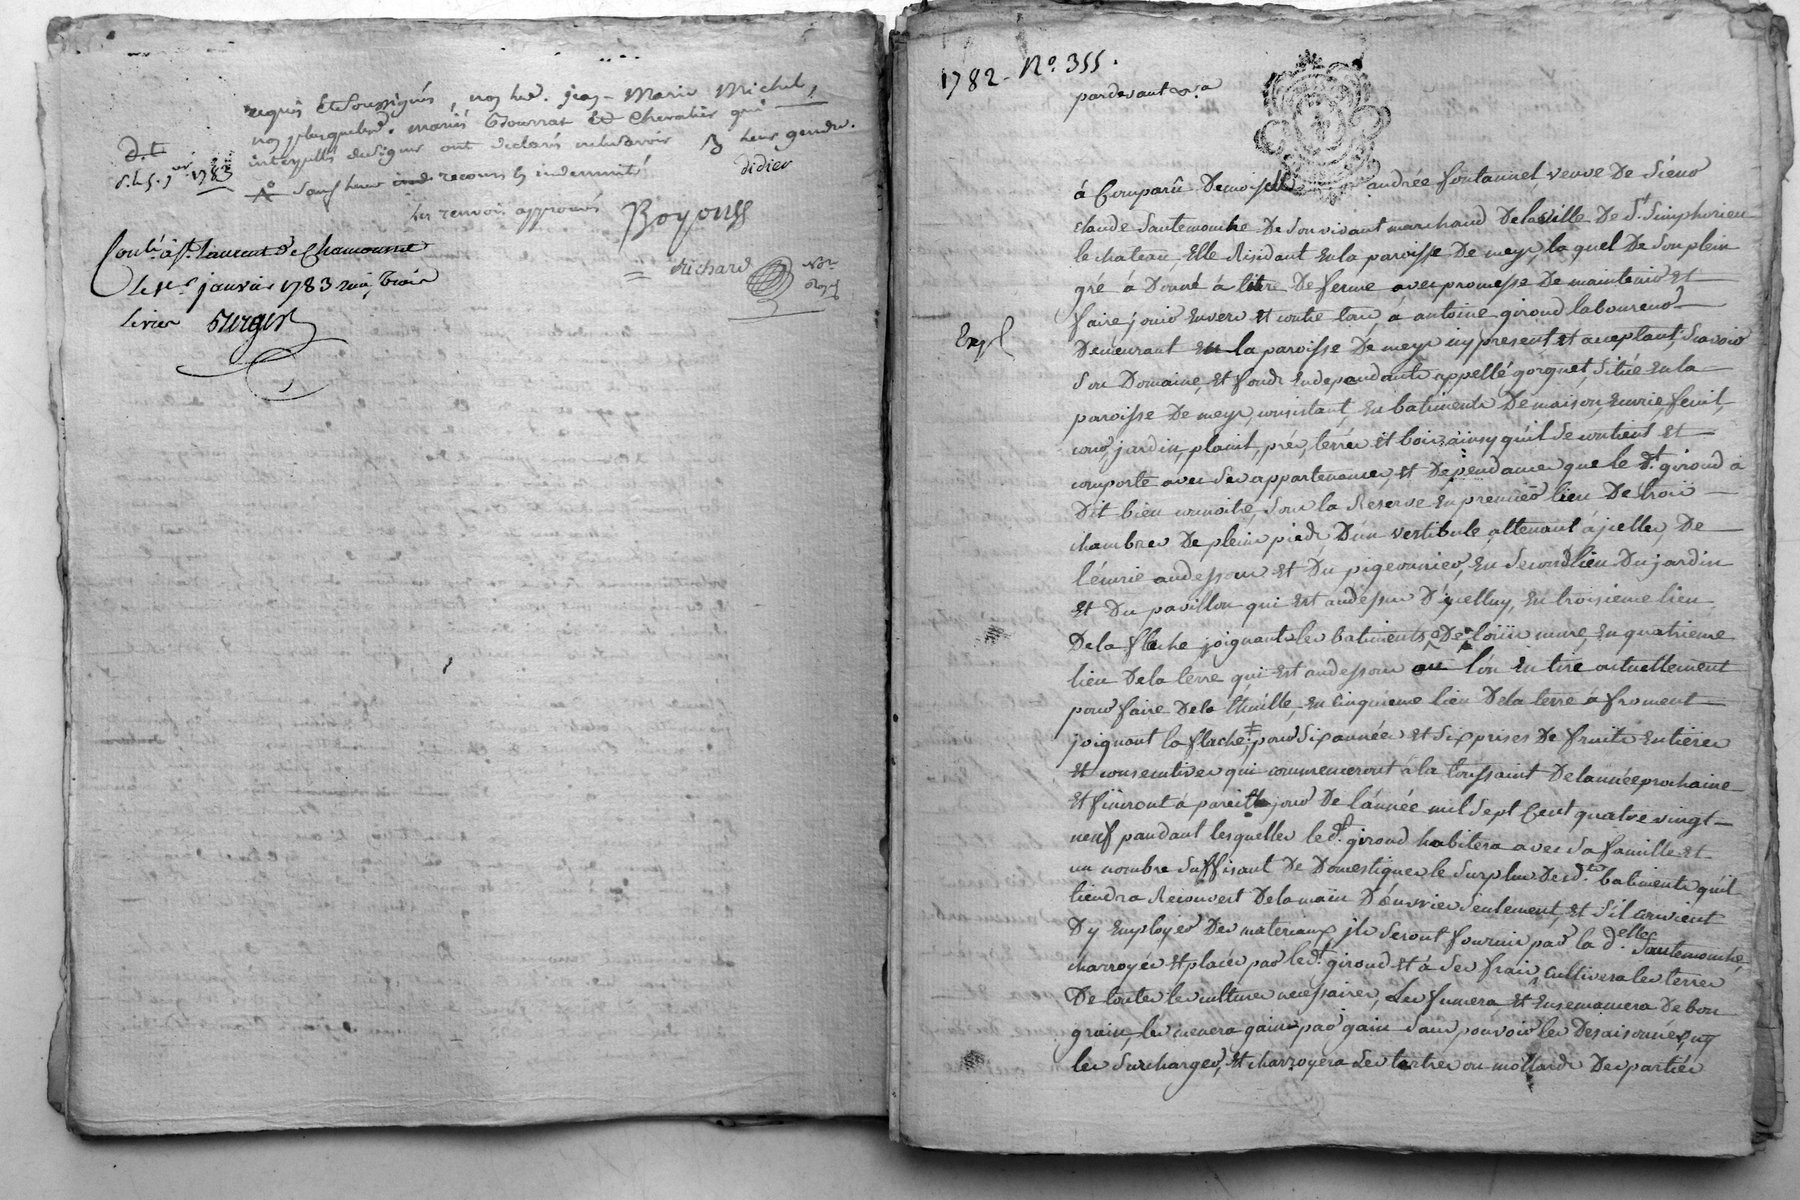 requis et soussignés, non led. jean-Marie Michel,
non plus que led. mariés et Chevalier qui
interpellés de signer ont déclarés ne le savoir leur gendre.
d.t
1783
sauf leur recours & indemnité didier
les renvois approuvés Boyoud
Richard Nore
Royal
Conlé à st. laurent de Chamousset
le janvier 1783 reçu trois
livres
1782 - No. 355.
pardevant
à Comparû Demoiselle andrée fontannel, veuve De sieur
claude Sautemouche De son vivant marchand De la ville De St. Simphorien
le chateau, Elle Résidant En la paroisse De meys, la quel De son plein
gré à Donné à titre De ferme avec promesse De maintenir et
faire jouir Envers Et contre tous, à antoine giroud laboureur
Expl
Demeurant En la paroisse De meys icy present Et acceptant, Scavoir
Son Domaine, Et fonds Endependants appellé gorgnet, Situé En la
paroisse De meys, consistant, En batiments De maison, Ecurie, fenil,
cour, jardin, plaint, prés, terres et bois, ainsy qu'il Se contient Et
comporte avec Ses appartenances, Et Dependances que le dt. giroud à
Dit bien connoitre, Sous la Reserve En premier lieu De trois
chambres De plein pied, D'un vestibule attenant à jcelles, De
l'écurie audessous Et Du pigeonnier, En Second lieu Du jardin
Et Du pavillon qui Est audessus D'jcelluy, En troisieme lieu
De la flache joignant les batiments De mure, En quatrieme
lieu De la terre qui Est audessous ou l'on En tire actuellement
pour faire De la thuille, En Cinquieme lieu De la terre à froment
joignant la flache, pour Six années Et Six prises De fruits Entieres
Et consecutives qui commenceront à la toussaint De lannée prochaine
Et finiront à pareil jour De l'année mil Sept Cent quatre vingt
neuf pandant lesquelles le dt. giroud habitera avec Sa famille Et
un nombre Suffisant De Domestiques le Surplus Desdts. batiments qu'il
tiendra Recouvert De la main D'ouvrier Seulement, Et S'il convient
D'y Employer Des materiaux, jls Seront fournis par la delle Sautemouche,
charroyés Et placés par le dt. giroud Et à Ses frais, Cultivera les terres
De toutes les cultures necessaires, Les fumera Et Ensemancera De bon
grain, les menera gain par gain Sans pouvoir les Desaisonner, ny
les Surcharger, Et charroyera Les tertres ou mollards Des parties